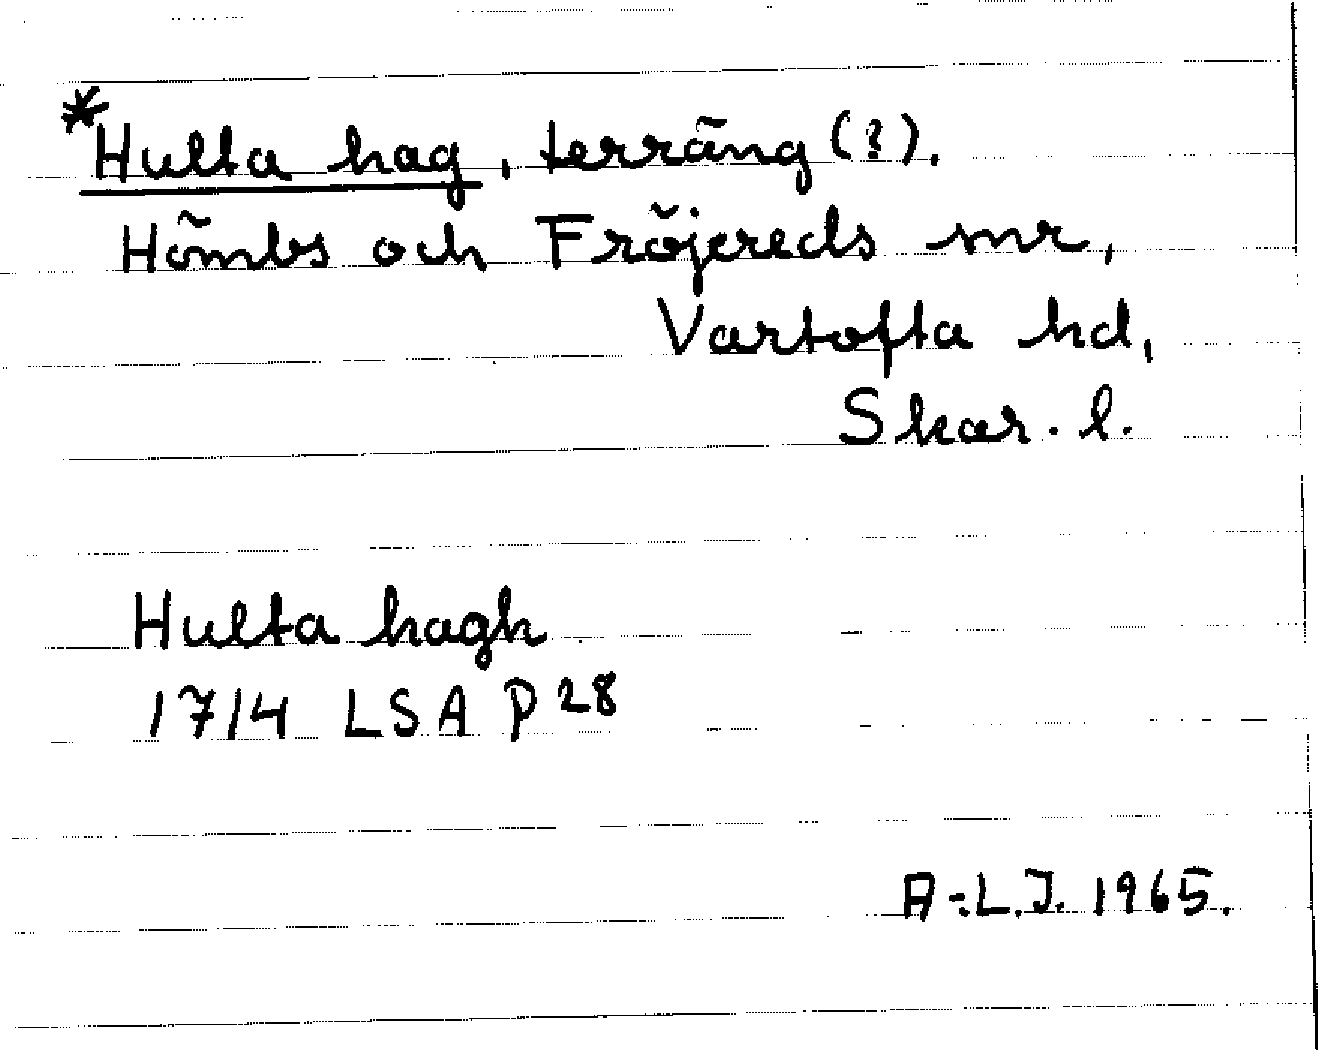 *Hulta hag, terräng (?).
Hömbs och Fröjereds snr,
Vartofta hd,
Skar. l.
Hulta hagh
1714 LSA P 28
A-L.J. 1965.